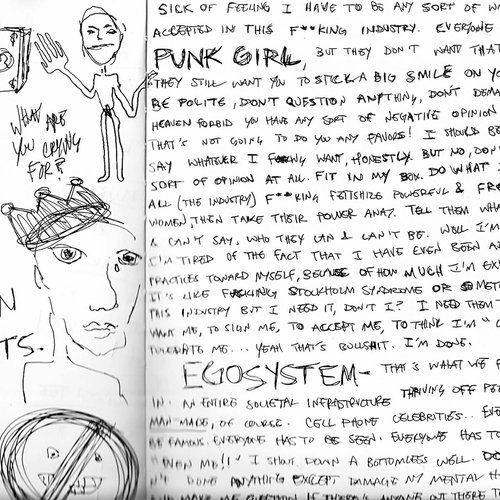 WHAT ARE
YOU CRYING
FOR?
N
TS.
SICK OF FEELING I HAVE TO BE ANY SORT OF W
ACCEPTED IN THIS F**KING INDUSTRY. EVERYONE
PUNK GIRL, BUT THEY DON'T WANT THAT
THEY STILL WANT YOU TO STICK A BIG SMILE ON YO
BE POLITE, DON'T QUESTION ANYTHING, DON'T DEMA
HEAVEN FORBID YOU HAVE ANY SORT OF NEGATIVE OPINION
THAT'S NOT GOING TO DO YOU ANY FAVORS! I SHOULD BE
SAY WHATEVER I WANT, HONESTLY. BUT NO, DON'
SORT OF OPINION AT ALL. FIT IN MY BOX. DO WHAT I
ALL (THE INDUSTRY) F**KING FETISHIZE POWERFUL & FRE
WOMEN, THEN TAKE THEIR POWER AWAY. TELL THEM WHA
& CAN'T SAY, WHO THEY CAN & CAN'T BE. WELL I'M
I'M TIRED OF THE FACT THAT I HAVE EVEN BEEN A
PRACTICES TOWARD MYSELF, BECAUSE OF HOW MUCH I'M EX
IT'S LIKE FUCKING STOCKHOLM SYNDROME OR SOMET
THIS INDUSTRY BUT I NEED IT, DON'T I? I NEED THEM
WANT ME, TO SIGN ME, TO ACCEPT ME, TO THINK I'M "C
TOLERATE ME... YEAH THAT'S BULLSHIT. I'M DONE.
EGOSYSTEM- THAT'S WHAT WE
IN. AN ENTIRE SOCIETAL INFRASTRUCTURE THRIVING OFF PE
MAN MADE, OF COURSE. CELL PHONE CELEBRITIES... EVE
BE FAMOUS. EVERYONE HAS TO BE SEEN. EVERYONE HAS TO
ME!!" I SHOUT DOWN A BOTTOMLESS WELL. DO
DONE ANYTHING EXCEPT DAMAGE MY MENTAL H
MAKE ME QUESTION IF THERE'S ANYONE OUT THERE